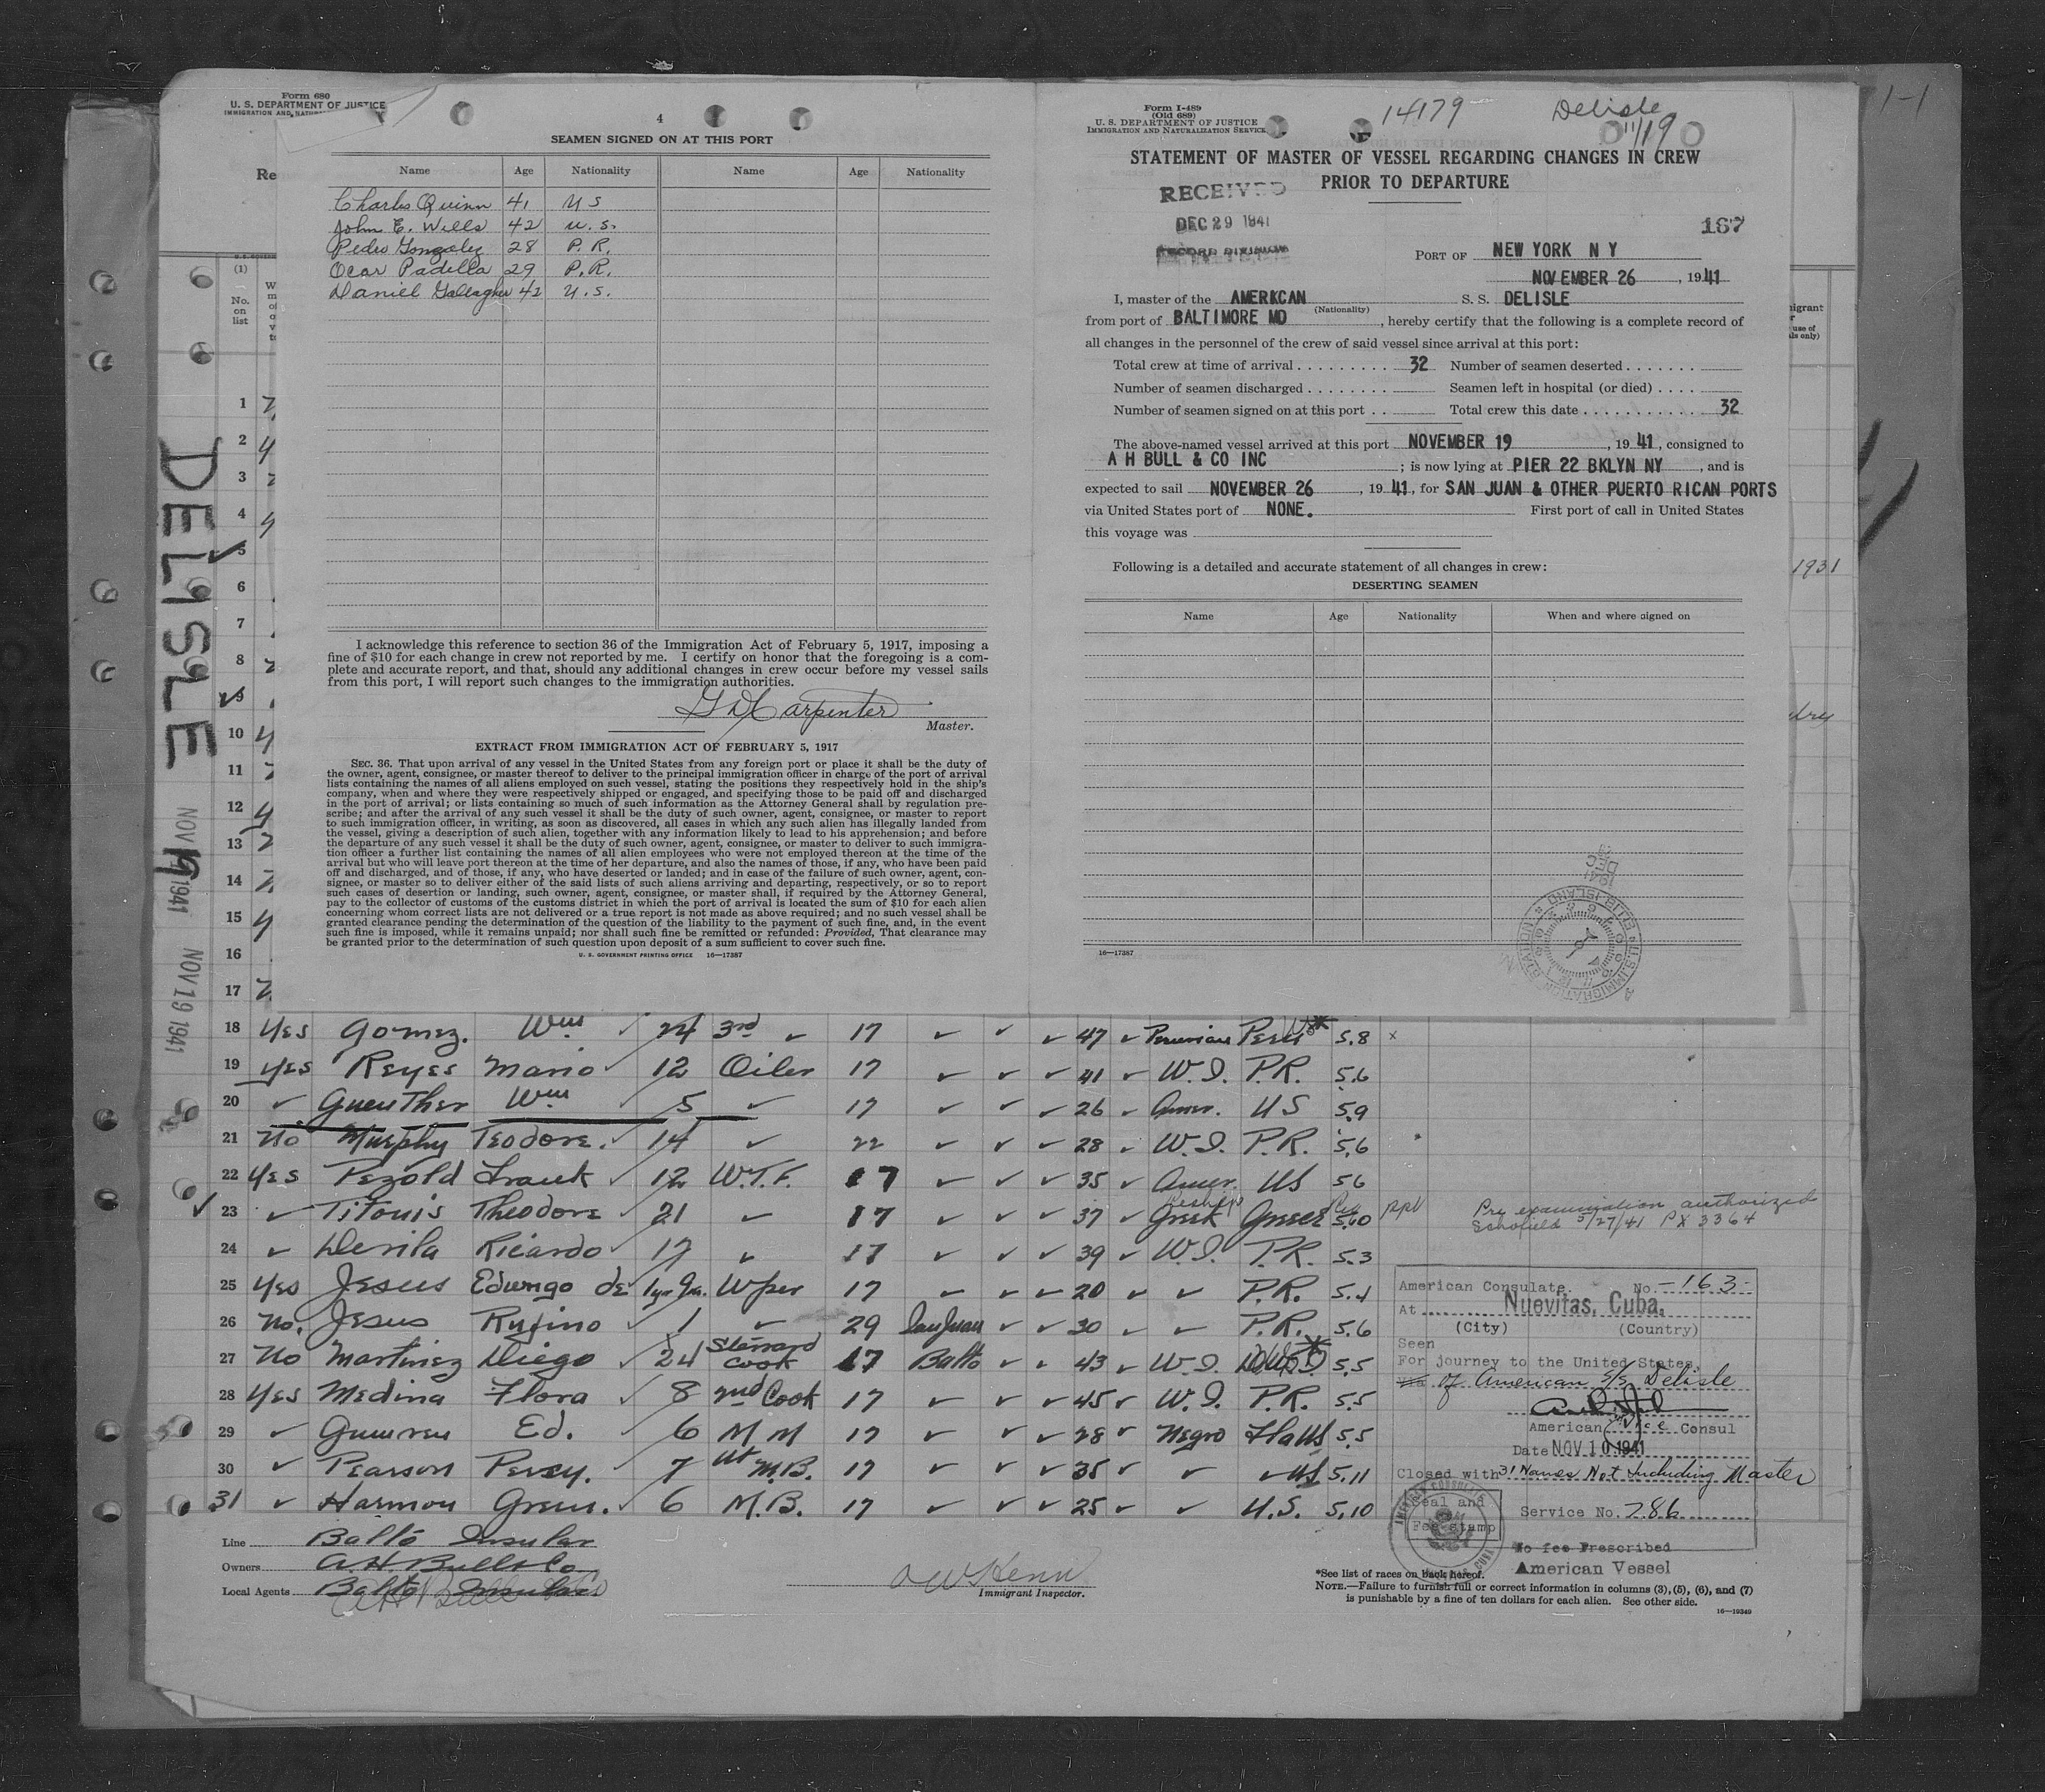 Form 680
U. S. DEPARTMENT OF JUSTICE
Re
(1)
No.
on
list
4
SEAMEN SIGNED ON AT THIS PORT
Name Age Nationality Name Age Nationality
Charles Quinn 41 U S
John E. Wells 42 U. S.
Pedro Gonzalez 28 P. R.
Ocar Padilla 29 P. R.
Daniel Gallagher 42 U. S.
I acknowledge this reference to section 36 of the Immigration Act of February 5, 1917, imposing a
fine of $10 for each change in crew not reported by me. I certify on honor that the foregoing is a com-
plete and accurate report, and that, should any additional changes in crew occur before my vessel sails
from this port, I will report such changes to the immigration authorities.
G D Carpenter
Master.
EXTRACT FROM IMMIGRATION ACT OF FEBRUARY 5, 1917
SEC. 36. That upon arrival of any vessel in the United States from any foreign port or place it shall be the duty of
the owner, agent, consignee, or master thereof to deliver to the principal immigration officer in charge of the port of arrival
lists containing the names of all aliens employed on such vessel, stating the positions they respectively hold in the ship's
company, when and where they were respectively shipped or engaged, and specifying those to be paid off and discharged
in the port of arrival; or lists containing so much of such information as the Attorney General shall by regulation pre-
scribe; and after the arrival of any such vessel it shall be the duty of such owner, agent, consignee, or master to report
to such immigration officer, in writing, as soon as discovered, all cases in which any such alien has illegally landed from
the vessel, giving a description of such alien, together with any information likely to lead to his apprehension; and before
the departure of any such vessel it shall be the duty of such owner, agent, consignee, or master to deliver to such immigra-
tion officer a further list containing the names of all alien employees who were not employed thereon at the time of the
arrival but who will leave port thereon at the time of her departure, and also the names of those, if any, who have been paid
off and discharged, and of those, if any, who have deserted or landed; and in case of the failure of such owner, agent, con-
signee, or master so to deliver either of the said lists of such aliens arriving and departing, respectively, or so to report
such cases of desertion or landing, such owner, agent, consignee, or master shall, if required by the Attorney General,
pay to the collector of customs of the customs district in which the port of arrival is located the sum of $10 for each alien
concerning whom correct lists are not delivered or a true report is not made as above required; and no such vessel shall be
granted clearance pending the determination of the question of the liability to the payment of such fine, and, in the event
such fine is imposed, while it remains unpaid; nor shall such fine be remitted or refunded: Provided, That clearance may
be granted prior to the determination of such question upon deposit of a sum sufficient to cover such fine.
U. S. GOVERNMENT PRINTING OFFICE 16—17387
Form I-489
(Old 689)
U. S. DEPARTMENT OF JUSTICE
IMMIGRATION AND NATURALIZATION SERVICE
14179
Delisle
11/19
STATEMENT OF MASTER OF VESSEL REGARDING CHANGES IN CREW
PRIOR TO DEPARTURE
RECEIVED
DEC 29 1941
RECORD DIVISION
167
PORT OF NEW YORK N Y
NOVEMBER 26, 1941
I, master of the AMERKCAN S. S. DELISLE
(Nationality)
from port of BALTIMORE MD, hereby certify that the following is a complete record of
all changes in the personnel of the crew of said vessel since arrival at this port:
Total crew at time of arrival 32 Number of seamen deserted
Number of seamen discharged Seamen left in hospital (or died)
Number of seamen signed on at this port Total crew this date 32
The above-named vessel arrived at this port NOVEMBER 19, 1941, consigned to
A H BULL & CO INC; is now lying at PIER 22 BKLYN NY, and is
expected to sail NOVEMBER 26, 1941, for SAN JUAN & OTHER PUERTO RICAN PORTS
via United States port of NONE. First port of call in United States
this voyage was
Following is a detailed and accurate statement of all changes in crew:
DESERTING SEAMEN
Name Age Nationality When and where signed on
16—17387
1941
DEC
U.S. IMMIGRATION STATION ELLIS ISLAND
1-1
1931
DELISLE
NOV 19 1941
NOV 19 1941
1
2
3
4
5
6
7
8
9
10
11
12
13
14
15
16
17
18 Yes Gomez. Wm 24 3rd 17 47 Peruvian Peru 5.8 x
19 yes Reyes Mario 12 Oiler 17 41 W. I. P.R. 5.6
20 Guenther Wm 5 17 26 Amer. US 5.9
21 No Murphy Teodore. 14 22 28 W. I. P.R. 5.6
22 Yes Pezold Frank 12 W.T.F. 17 35 Amer. US 56
23 Titonis Theodore 21 17 37 Greek Greece 5.10 Pre examination authorized
5/27/41 PX 3364
24 Devila Ricardo 17 17 39 W. I. P.R. 5.3
25 Yes Jesus de 1 yr Wper 17 20 P.R. 5.4
26 No. Jesus Rufino 1 29 San Juan 30 P.R. 5.6
27 No Martinez Diego 24 Steward Cook 17 Balto 43 W. I. 5.5
28 Yes Medina Flora 8 2nd Cook 17 45 W. I. P.R. 5.5
29 Ed. 6 M M 17 28 Negro Fla US 5.5
30 Pearson Percy. 7 M.B. 17 35 US 5.11
31 Harmon Green. 6 M.B. 17 25 U.S. 5.10
American Consulate No. -163-
At Nuevitas, Cuba.
(City) (Country)
Seen
For journey to the United States
via of American S/S Delisle
American Vice Consul
Date NOV 10 1941
Closed with 31 Names Not Including Master
Seal and
Fee stamp
Service No. 786
No fee Prescribed
American Vessel
Line Balto Insular
Owners A.H. Bull & Co
Local Agents Balto Insular
Immigrant Inspector.
*See list of races on back hereof.
NOTE.—Failure to furnish full or correct information in columns (3), (5), (6), and (7)
is punishable by a fine of ten dollars for each alien. See other side.
16—19349